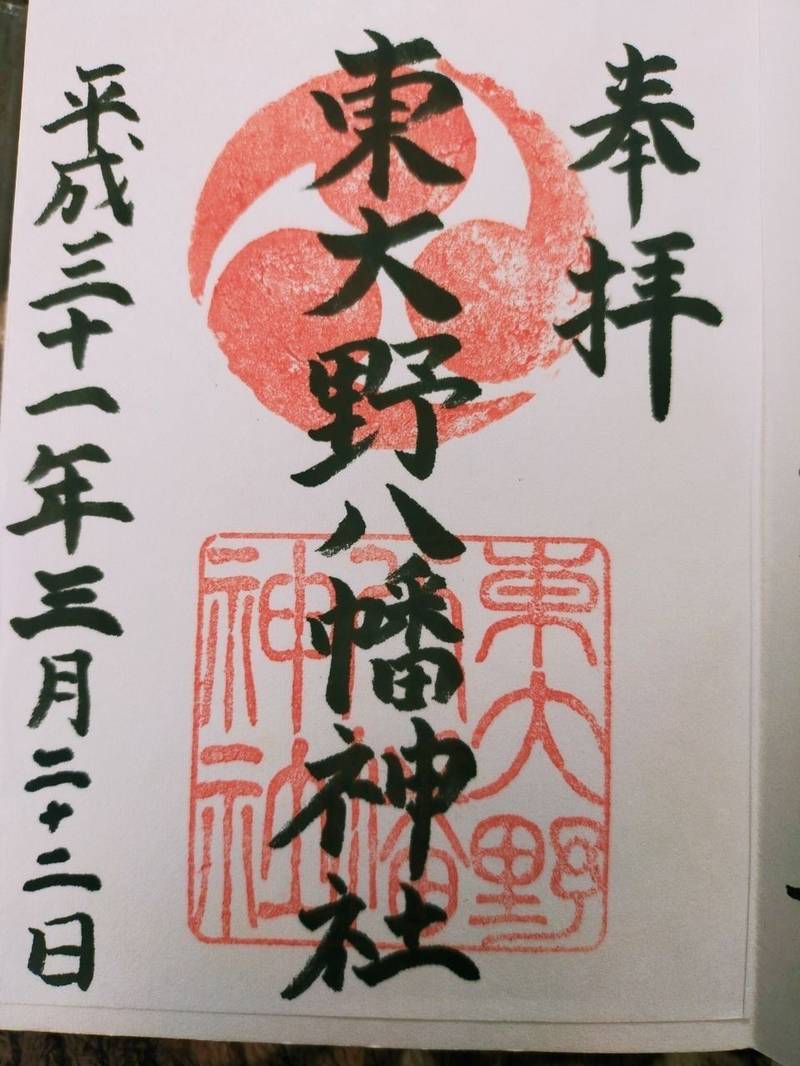 奉拝
東大野八幡神社
平成三十一年三月二十二日
東大野
八幡
神社